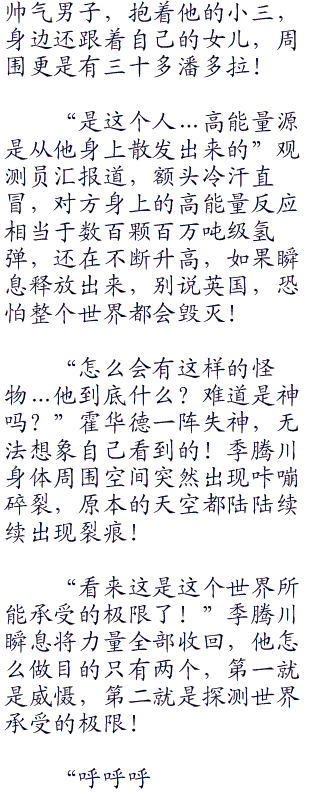 帅气男子，抱着他的小三，
身边还跟着自己的女儿，周
围更是有三十多潘多拉！
“是这个人…高能量源
是从他身上散发出来的”观
测员汇报道，额头冷汗直
冒，对方身上的高能量反应
相当于数百颗百万吨级氢
弹，还在不断升高，如果瞬
息释放出来，别说英国，恐
怕整个世界都会毁灭！
“怎么会有这样的怪
物…他到底什么？难道是神
吗？”霍华德一阵失神，无
法想象自己看到的！季腾川
身体周围空间突然出现咔嘣
碎裂，原本的天空都陆陆续
续出现裂痕！
“看来这是这个世界所
能承受的极限了！”季腾川
瞬息将力量全部收回，他怎
么做目的只有两个，第一就
是威慑，第二就是探测世界
承受的极限！
“呼呼呼